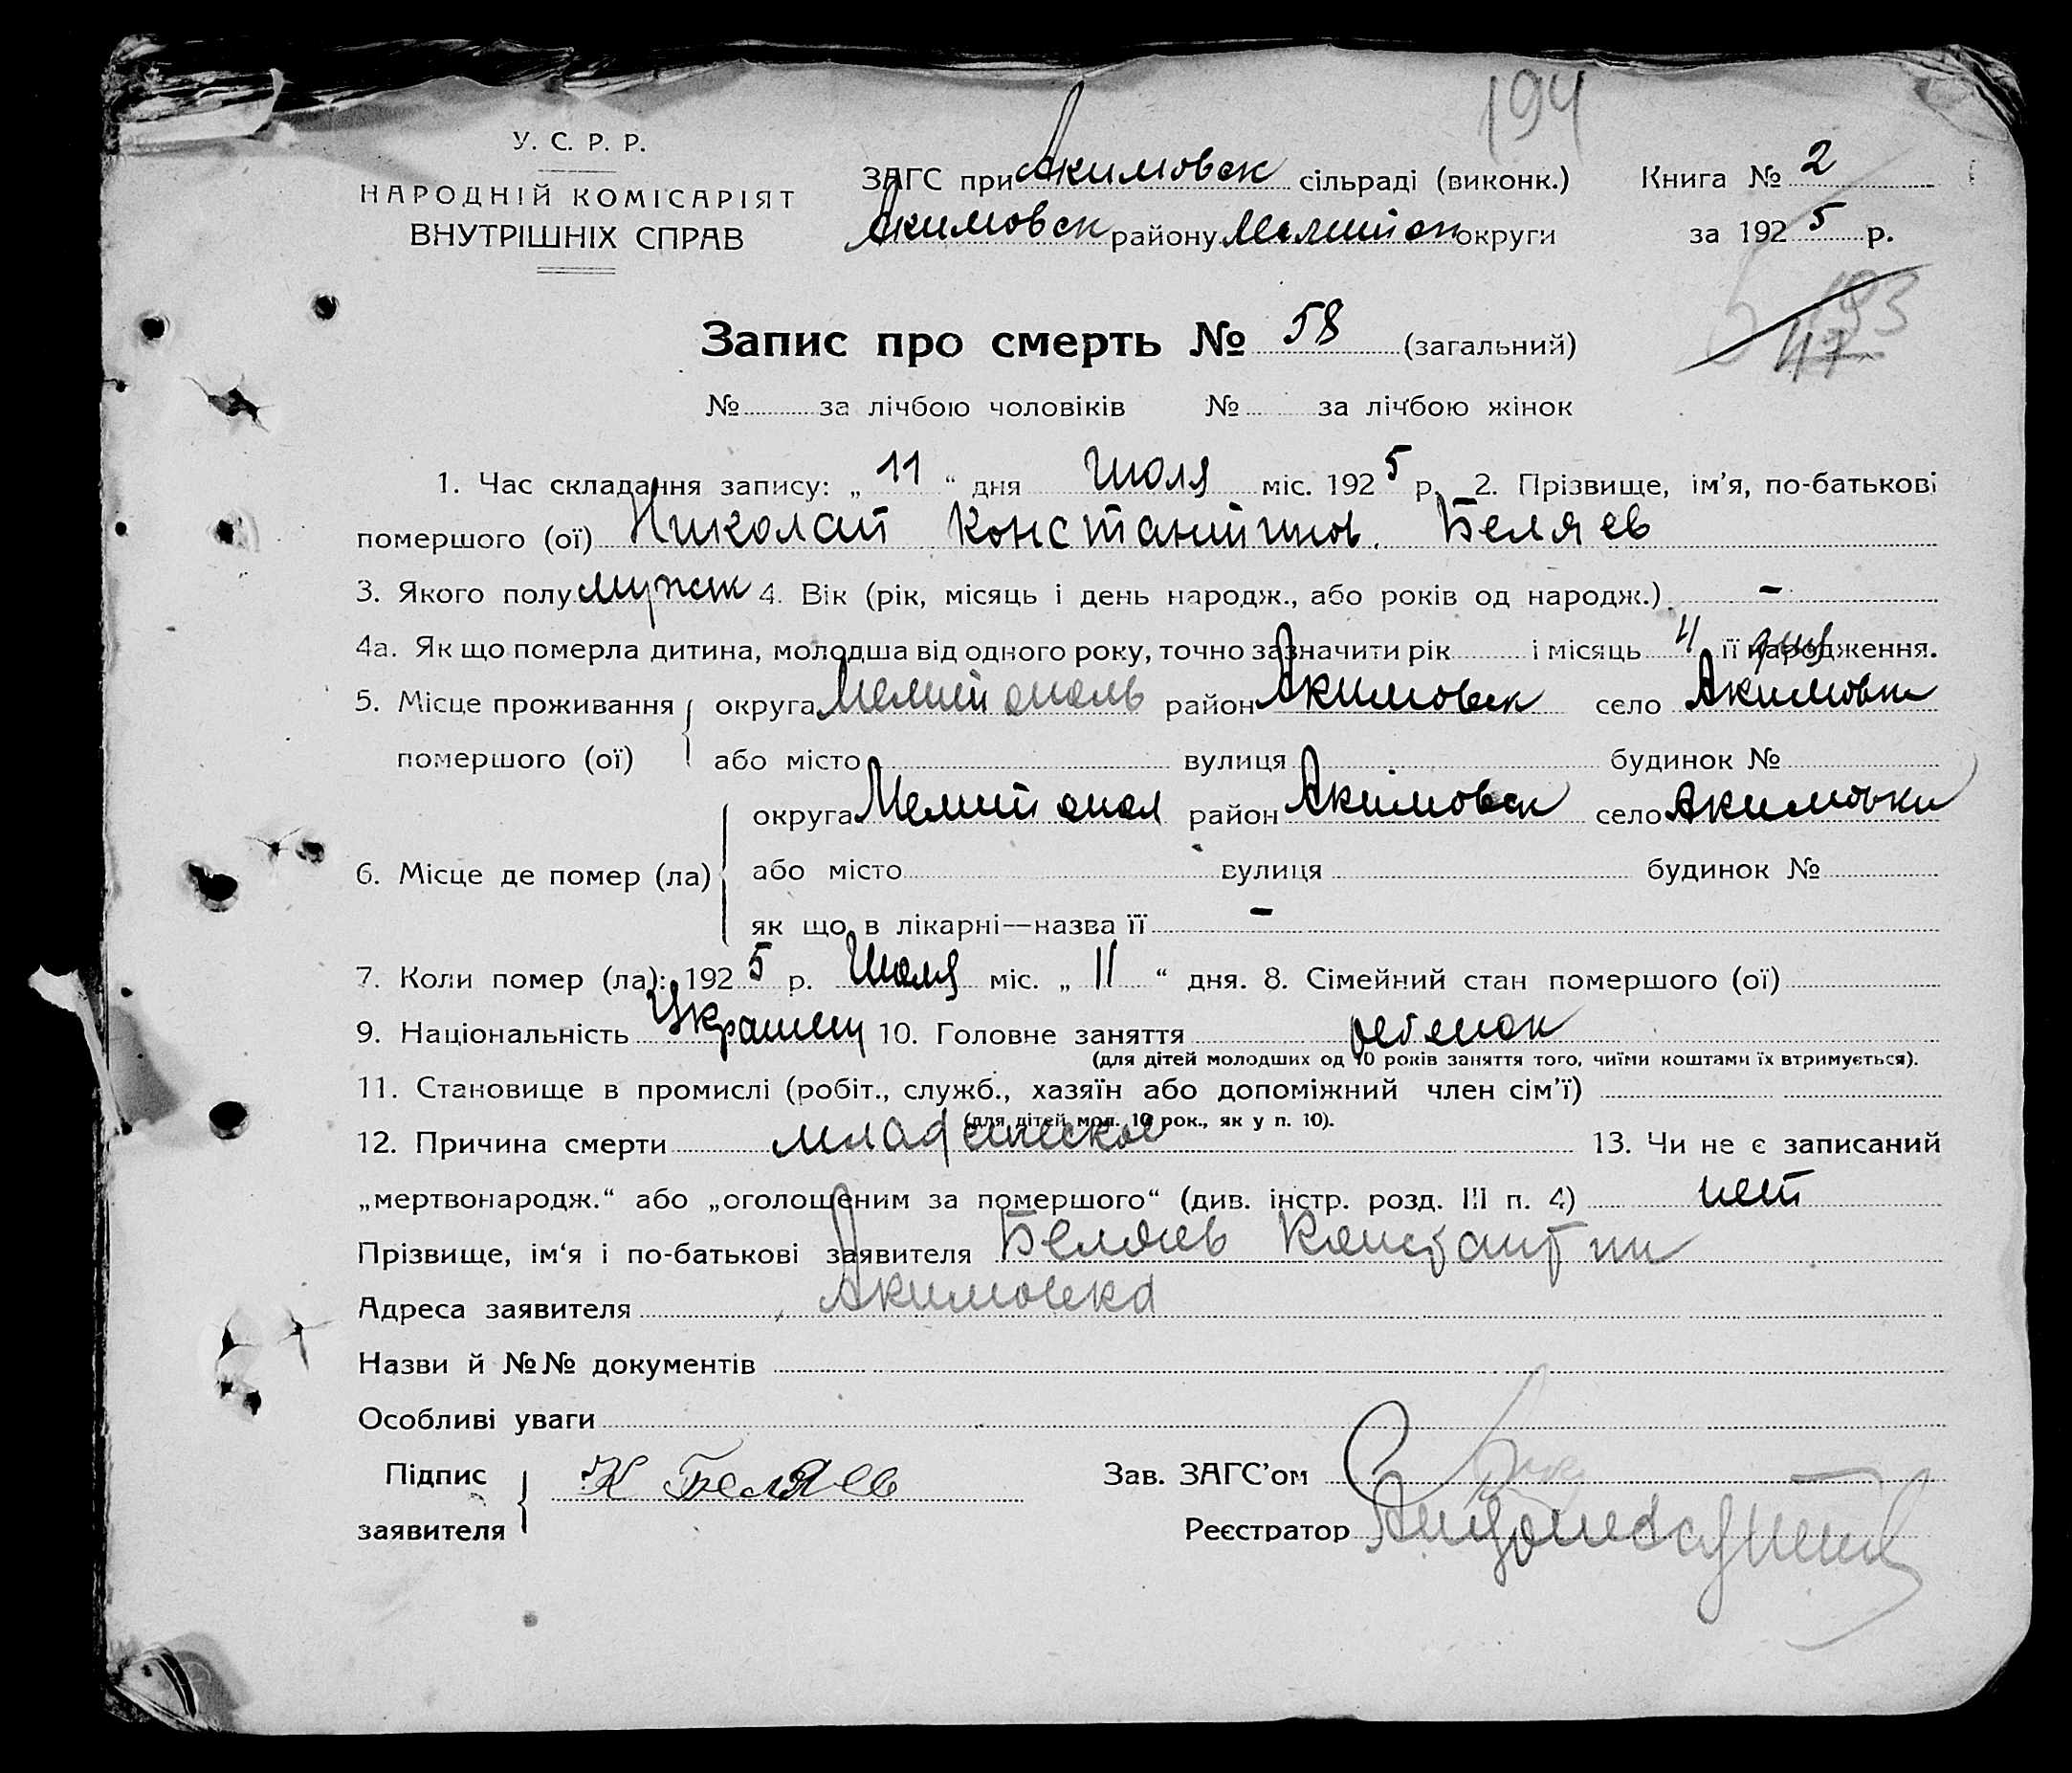 194
У. С. Р. Р.
НАРОДНІЙ КОМІСАРІЯТ
ВНУТРІШНІХ СПРАВ
ЗАГС при Акимовск сільраді (виконк.) Книга № 2
Акимовск району Мелитоп округи за 1925 р.
193
47
Запис про смерть № 58 (загальний)
№ за лічбою чоловіків № за лічбою жінок
1. Час складання запису: „11“ дня Июля міс. 1925 р. 2. Прізвище, ім’я, по-батькові
помершого (ої) Николай Константинов. Беляев
3. Якого полу мужск 4. Вік (рік, місяць і день народж., або років од народж.) -
4а. Як що померла дитина, молодша від одного року, точно зазначити рік і місяць її народження.
5. Місце проживання помершого (ої) округа Мелитополь район Акимовск село Акимовк
або місто вулиця будинок №
6. Місце де помер (ла) округа Мелитопол район Акимовск село Акимовки
або місто вулиця будинок №
як що в лікарні—назва її -
7. Коли помер (ла): 1925 р. Июля міс. „11“ дня. 8. Сімейний стан помершого (ої)
9. Національність Украинц 10. Головне заняття ребенок
(для дітей молодших од 10 років заняття того, чиїми коштами їх втримується).
11. Становище в промислі (робіт., служб., хазяїн або допоміжний член сім’ї)
(для дітей мол. 10 рок., як у п. 10).
12. Причина смерти младенческое 13. Чи не є записаний
„мертвонародж.“ або „оголошеним за помершого“ (див. інстр. розд. III п. 4) нет
Прізвище, ім‘я і по-батькові заявителя Беляев Константин
Адреса заявителя Акимовка
Назви й №№ документів
Особливі уваги
Підпис заявителя К Беляев Зав. ЗАГС’ом
Реєстратор